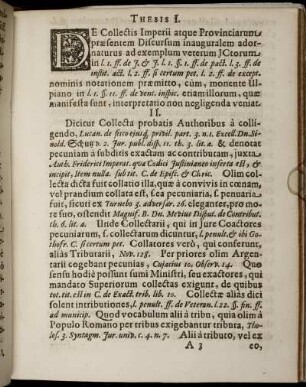 THESIS I.
DE Collectis Imperii atque Provinciarum
præsentem Discursum inauguralem ador-
naturus ad exemplum veterum JCtorum
in l. 1. ff. de J. & J. l. 1. §. 1. ff. de pact. l. 3. ff. de
instit. act. l. 2. ff. si certum pet. l. 2. ff. de except.
nominis notationem præmitto, cùm, monente Ul-
piano in l. 1. ff. de Vent. inspic. etiam illorum, quæ
manifesta sunt, interpretatio non negligenda veniat.
II.
Dicitur Collecta probatis Authoribus à colli-
gendo, Lucan. de fisco ejusq; privil. part. 3. n. 1. Excell. Dn. Si-
nold. Schütz n. 2. Jur. publ. disp. 11. th. 3. lit. a. & denotat
pecuniam à subditis exactam ac contributam, juxta
Auth. Friderici Imperat. quæ Codici Justinianeo inserta est, &
incipit, Item nulla. sub tit. C. de Episc. & Cleric. Olim col-
lecta dicta fuit collatio illa, quæ à convivis in cœnam,
vel prandium collata est, sea pecuniaria, f. pensata
fuit, sicuti ex Turnebo 3. adversar. 26. eleganter, pro mo-
re suo, ostendit Magnif. B. Dn. Mevius Disput. de Contribut.
th. 6. lit. a. Unde Collectarii, qui in Jure Coactores
pecuniarum, f. collectarum dicuntur, l. penult. & ibi Go-
thofr. C. si certum pet. Collatores verò, qui conferunt,
aliàs Tributarii, Nov. 128. Per priores olim Argen-
tarii cogebant pecunias, Cujacius 10. Observ. 14. Quo
sensu hodiè possunt sumi Ministri, seu exactores, qui
mandato Superiorum collectas exigunt, de quibus
tot. tit. est in C. de Exact. trib. lib. 10. Collectæ aliàs dici
solent intributiones, l. penult. ff. de Veteran. l. 22. §. fin. ff.
ad municip. Quod vocabulum alii à tribu, quia olim à
Populo Romano per tribus exigebantur tributa, Tho-
los. 3. Syntagm. Jur. univ. c. 4. n. 7. Alii à tributo, vel ex
A 3 eo,